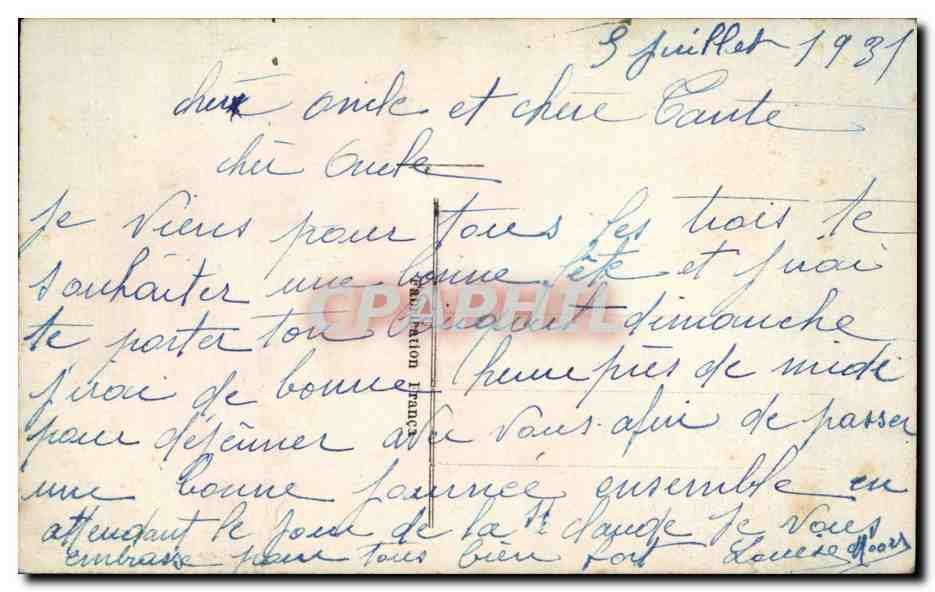 5 juillet 1931
cher oncle et chère Tante
cher Oncle
Je viens pour tous les trois te
souhaiter une bonne fête et j'irai
te porter ton dimanche
j'irai de bonne heure près de midi
pour déjeuner avec vous afin de passer
une bonne journée ensemble en
attendant le jour de la St Claude Je vous
embrasse pour tous bien fort Louise
Fabrication França
CPAPHIL